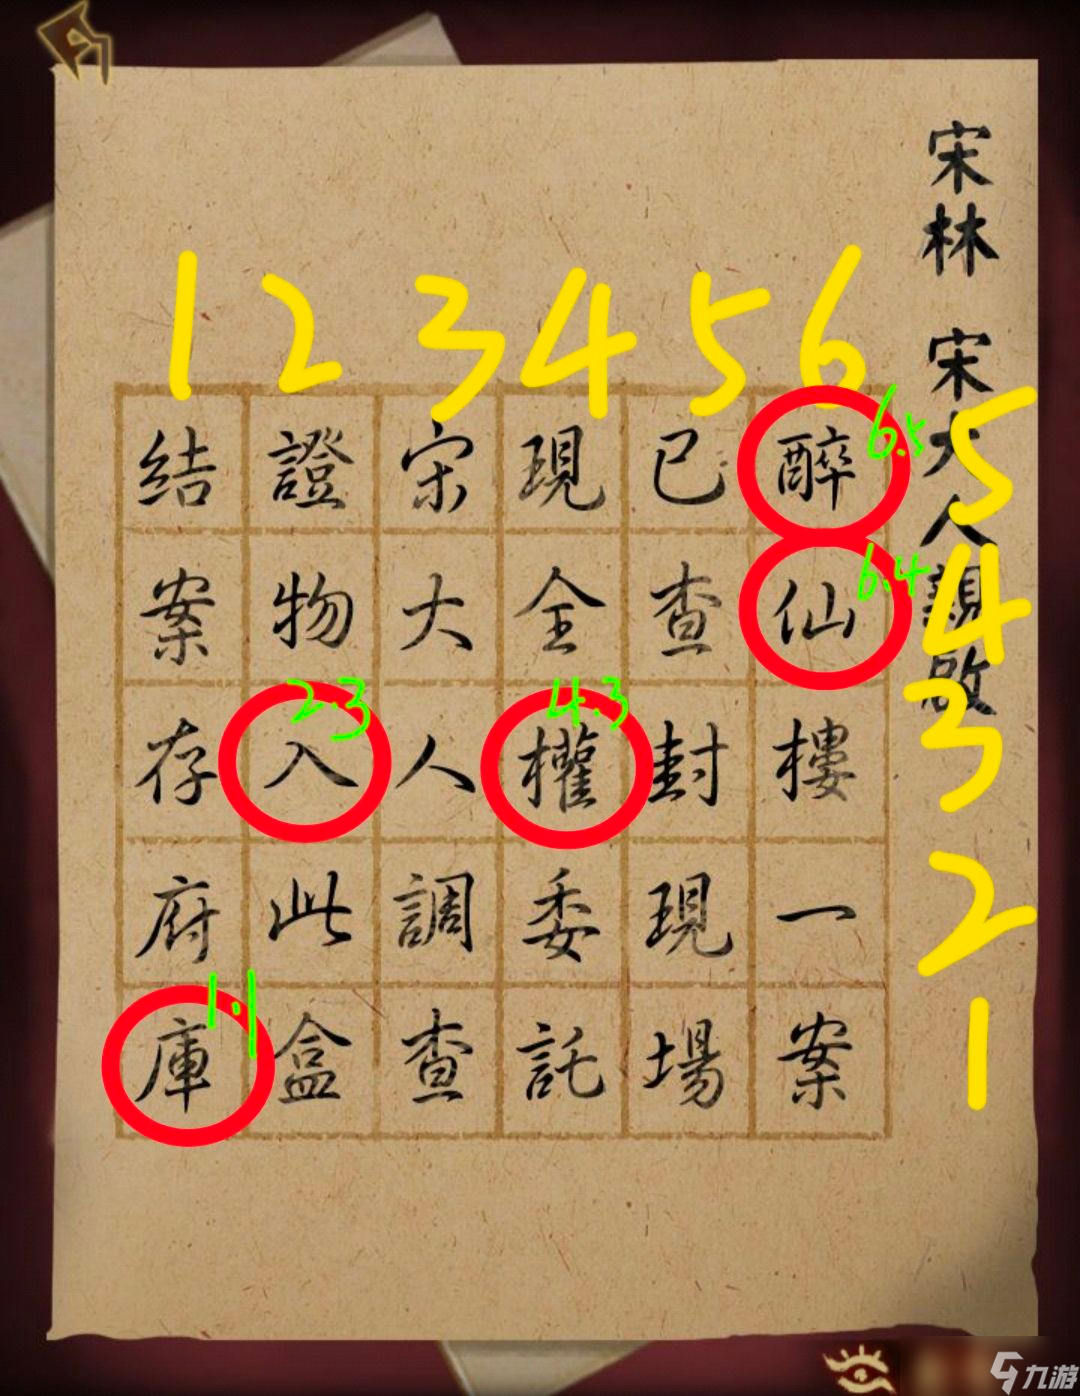 宋林 宋大人親啟
1 2 3 4 5 6
醉仙樓一案
已查封現場
現全權委託
宋大人調查
證物入此盒
結案存府庫
5
4
3
2
1
6.5
6.4
2.3
4.3
1.1
九游